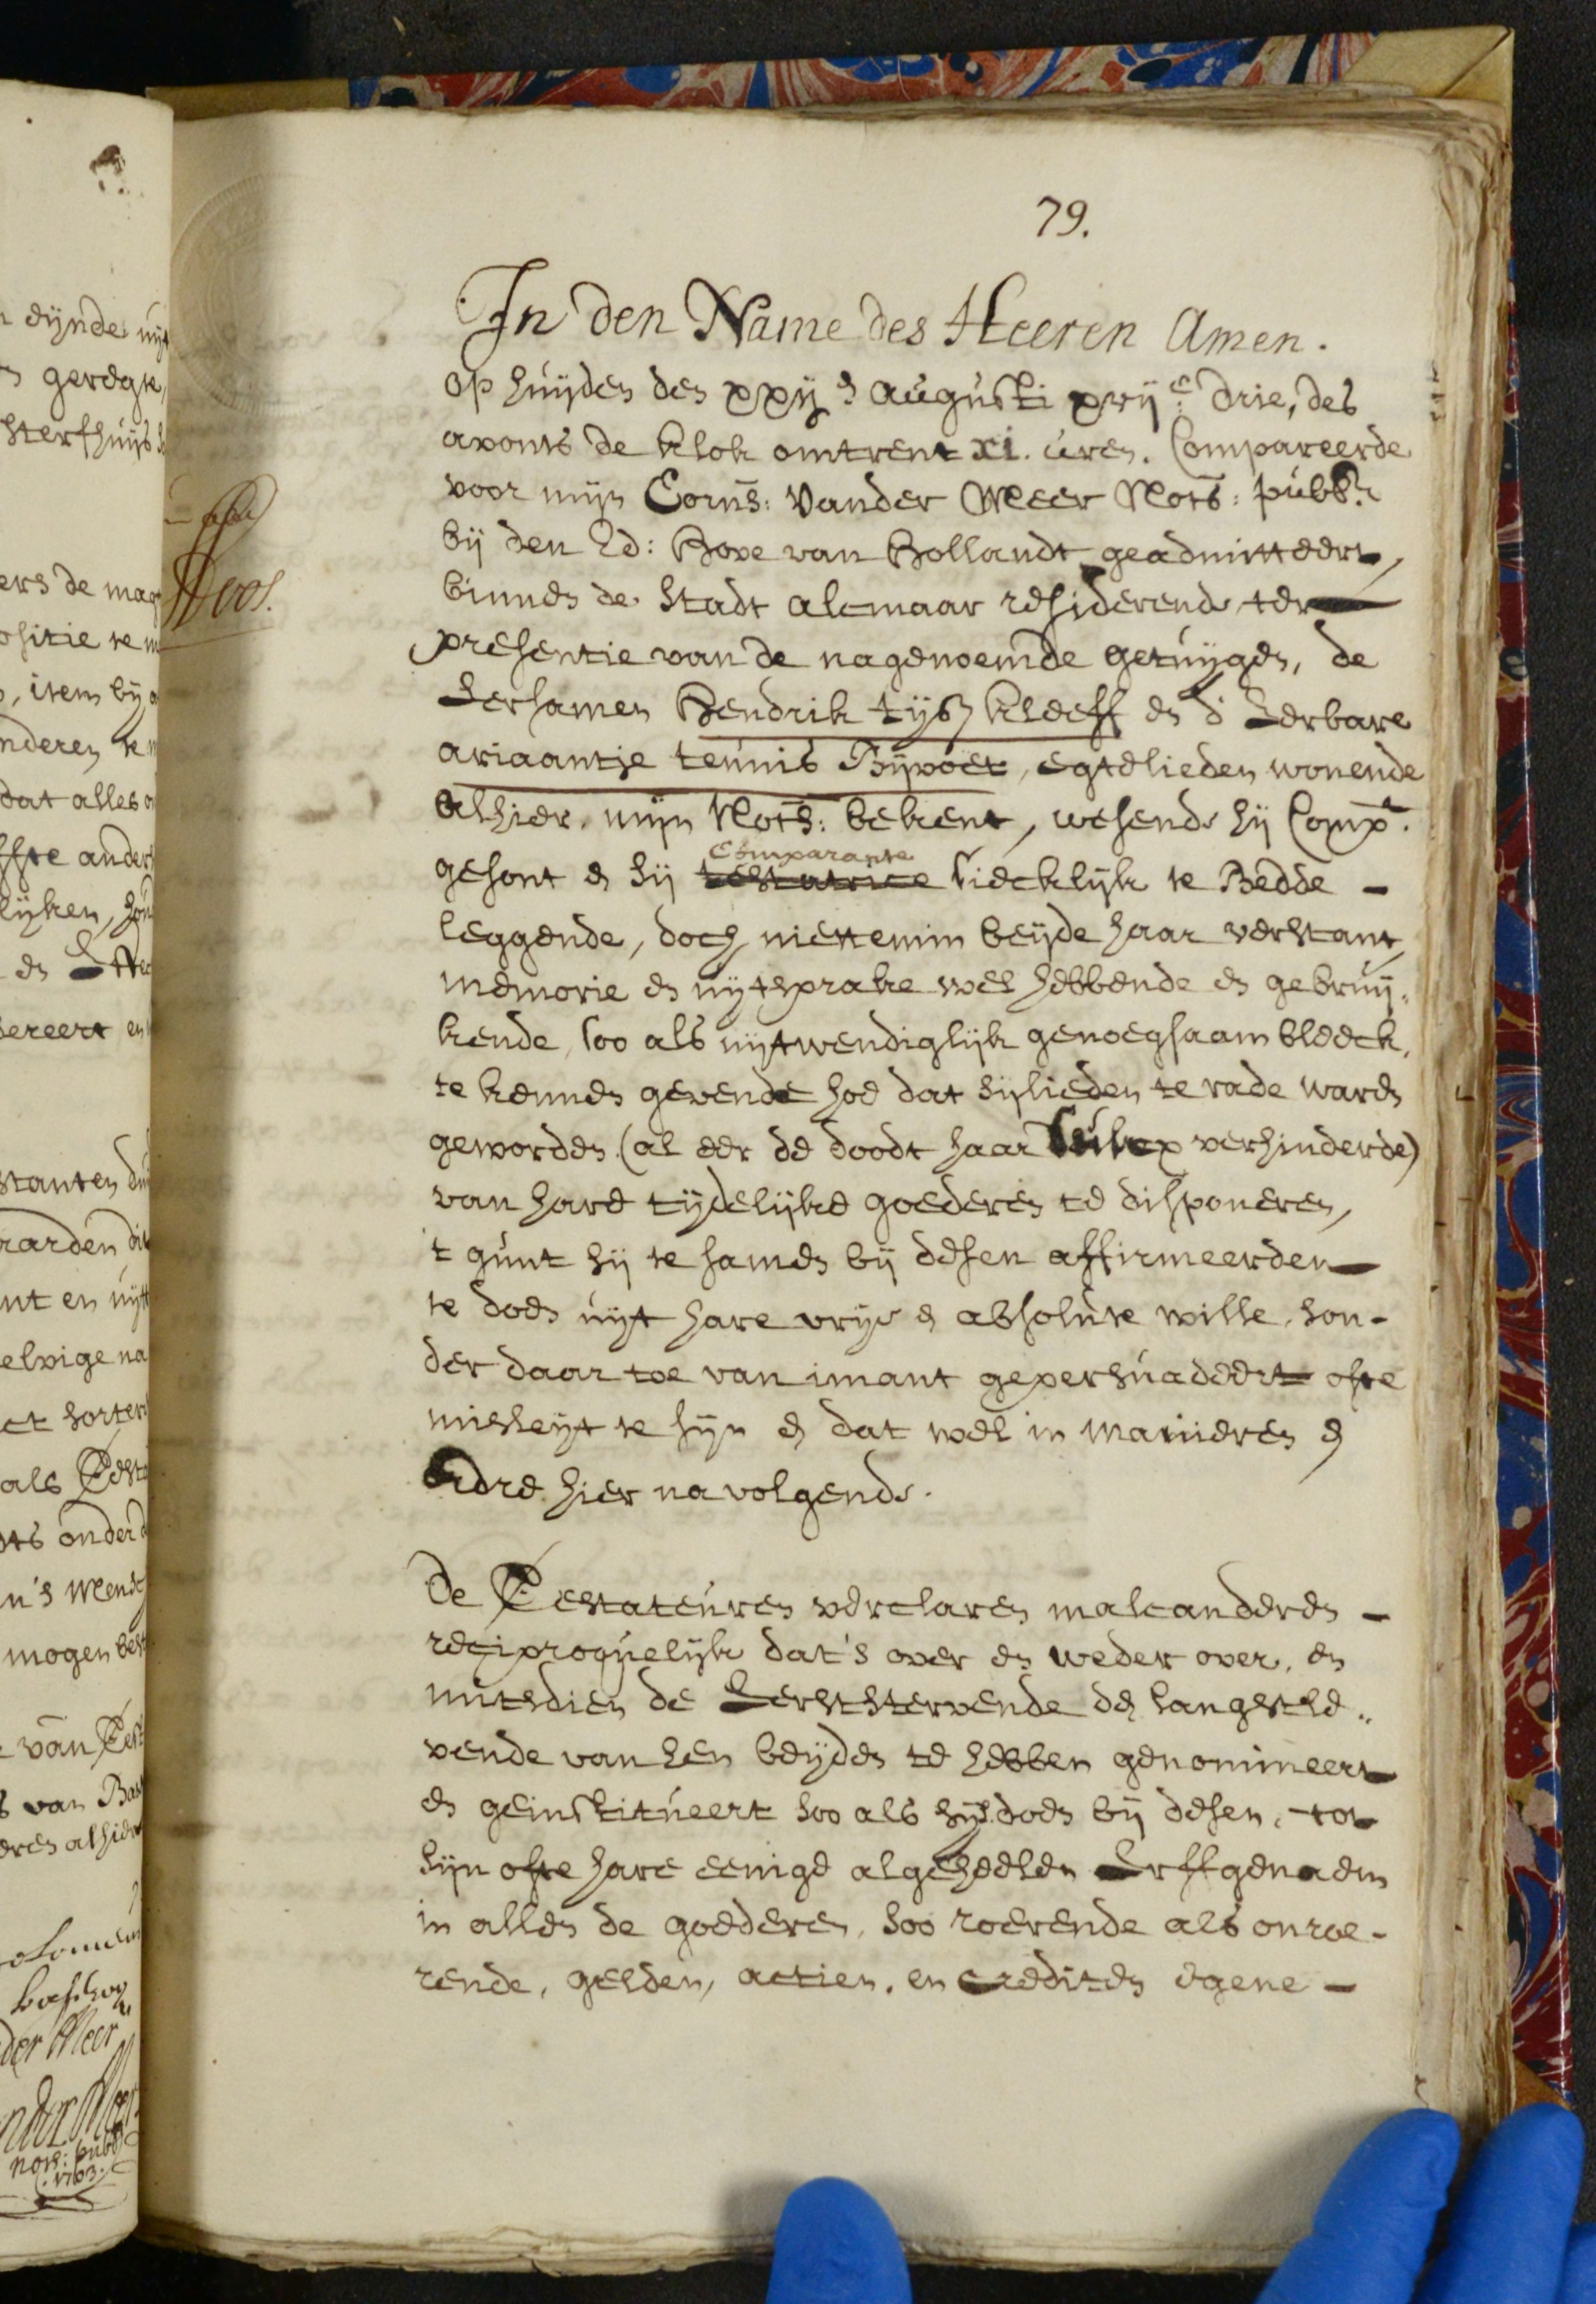 79.
In den Name des Heeren Amen.
op huijden den xxij.e augusti xvij.c drie, des
avonts de klok omtrent xi. uren. Compareerde
voor mijn Corns: Vander Meer Nots: publ.
bij den Ed: Hove van Hollandt geadmitteert,
binnen de Stadt alcmaar residerende, ter
presentie van de nagenoemde getuijgen, de
Eersamen Hendrik tijsz kleeff en d' Eerbare
ariaantje teunis Bijvoet, egtelieden wonende
alhier, mijn Nots: bekent, wesende hij Comp.t
Comparante
gesont en sij testatrice sieckelijk te Bedde -
leggende, doch niettemin beijde haar verstant,
memorie en uijtsprake wel hebbende en gebruij-
kende, soo als uijtwendiglijk genoegsaam bleeck,
te kennen gevende hoe dat sijlieden te rade waren
geworden (al eer de doodt haar sulcx verhinderde)
van hare tijdelijke goederen te disponeren,
't gunt sij te samen bij desen affirmeerden
te doen uijt hare vrije en absolute wille, son-
der daar toe van imant gepersuadeert ofte
misleijt te sijn en dat wel in manieren en
ordre hier navolgende.
De Testateuren verclaren malcanderen -
reciproquelijk dat's over en weder over, en
mitsdien de Eerststervende de langstle-
vende van hen beijden te hebben genomineert
en geinstitueert soo als sij doen bij desen, tot
sijn ofte hare eenige algeheelen Erffgenaem
in allen de goederen, soo roerende als onroe-
rende, gelden, actien, en crediten egene -
eijnde uijt
geregte,
sterfhuijs
ers de mag
ositie te
, item bij
nderen te
dat alles
ffte ander
lijken,
en
sereert en
stanten
aarden dit
nt en uijt
elvige na
ct sorter
als Test
onder
mogen
van Test
van Bas
eren alhier
der Meer
nots: publ
1703.